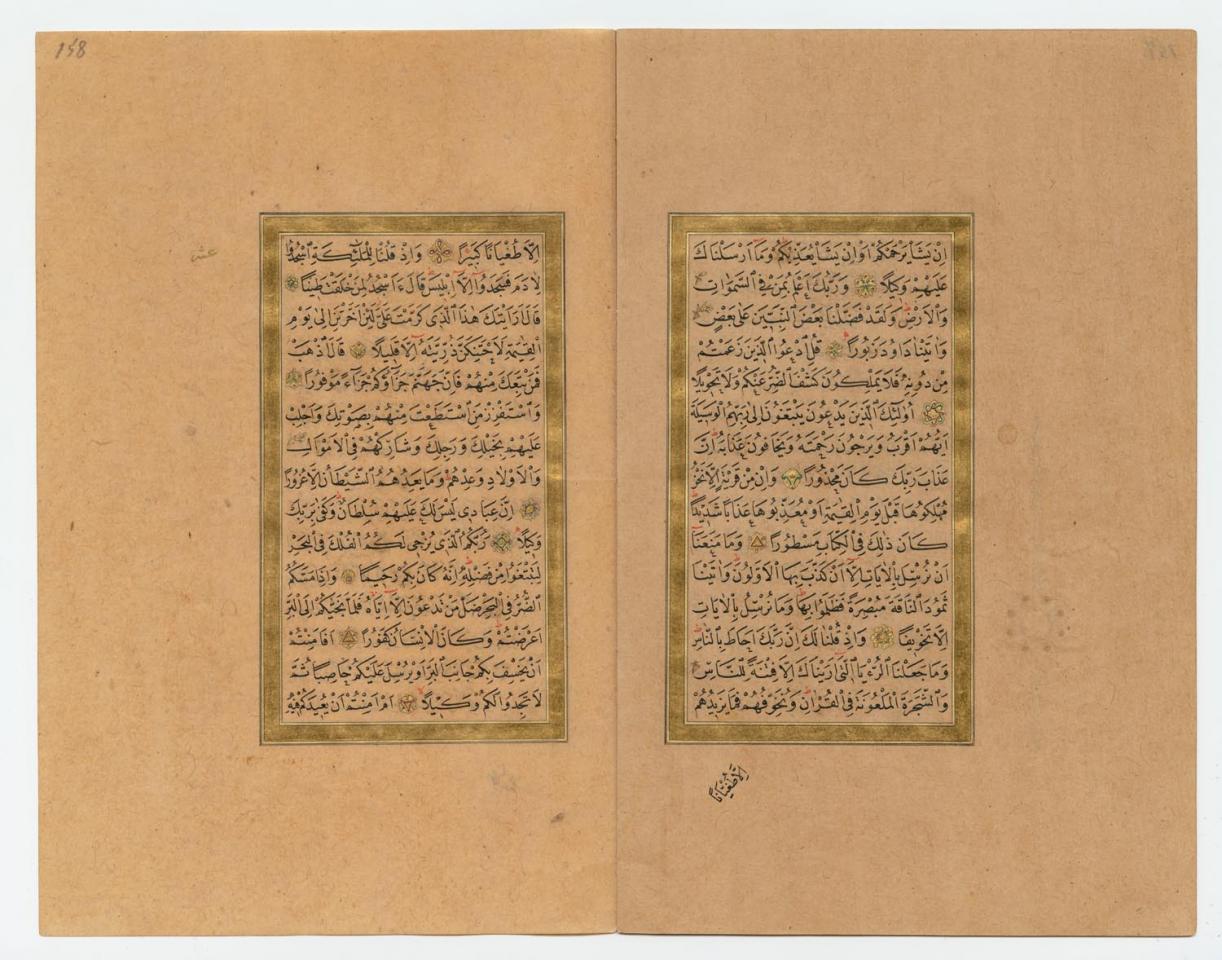 اِنْ يَشَأْ يَرْحَمْكُمْ اَوْ اِنْ يَشَأْ يُعَذِّبْكُمْ وَمَا اَرْسَلْنَاكَ
عَلَيْهِمْ وَكِيلًا وَرَبُّكَ اَعْلَمُ بِمَنْ فِي السَّمٰوَاتِ
وَالْاَرْضِ وَلَقَدْ فَضَّلْنَا بَعْضَ النَّبِيّٖنَ عَلٰى بَعْضٍ
وَاٰتَيْنَا دَاوُدَ زَبُورًا قُلِ ادْعُوا الَّذِينَ زَعَمْتُمْ
مِنْ دُونِهٖ فَلَا يَمْلِكُونَ كَشْفَ الضُّرِّ عَنْكُمْ وَلَا تَحْوِيلًا
اُولٰئِكَ الَّذِينَ يَدْعُونَ يَبْتَغُونَ اِلٰى رَبِّهِمُ الْوَسِيلَةَ
اَيُّهُمْ اَقْرَبُ وَيَرْجُونَ رَحْمَتَهُ وَيَخَافُونَ عَذَابَهُ اِنَّ
عَذَابَ رَبِّكَ كَانَ مَحْذُورًا وَاِنْ مِنْ قَرْيَةٍ اِلَّا نَحْنُ
مُهْلِكُوهَا قَبْلَ يَوْمِ الْقِيٰمَةِ اَوْ مُعَذِّبُوهَا عَذَابًا شَدِيدًا
كَانَ ذٰلِكَ فِي الْكِتَابِ مَسْطُورًا وَمَا مَنَعَنَا
اَنْ نُرْسِلَ بِالْاٰيَاتِ اِلَّا اَنْ كَذَّبَ بِهَا الْاَوَّلُونَ وَاٰتَيْنَا
ثَمُودَ النَّاقَةَ مُبْصِرَةً فَظَلَمُوا بِهَا وَمَا نُرْسِلُ بِالْاٰيَاتِ
اِلَّا تَخْوِيفًا وَاِذْ قُلْنَا لَكَ اِنَّ رَبَّكَ اَحَاطَ بِالنَّاسِ
وَمَا جَعَلْنَا الرُّءْيَا الَّتِي اَرَيْنَاكَ اِلَّا فِتْنَةً لِلنَّاسِ
وَالشَّجَرَةَ الْمَلْعُونَةَ فِي الْقُرْاٰنِ وَنُخَوِّفُهُمْ فَمَا يَزِيدُهُمْ
اِلَّا طُغْيَانًا
158
اِلَّا طُغْيَانًا كَبِيرًا وَاِذْ قُلْنَا لِلْمَلٰئِكَةِ اسْجُدُوا
لِاٰدَمَ فَسَجَدُوا اِلَّا اِبْلِيسَ قَالَ ءَاَسْجُدُ لِمَنْ خَلَقْتَ طِينًا
قَالَ اَرَاَيْتَكَ هٰذَا الَّذِي كَرَّمْتَ عَلَيَّ لَئِنْ اَخَّرْتَنِ اِلٰى يَوْمِ
الْقِيٰمَةِ لَاَحْتَنِكَنَّ ذُرِّيَّتَهُ اِلَّا قَلِيلًا قَالَ اذْهَبْ
فَمَنْ تَبِعَكَ مِنْهُمْ فَاِنَّ جَهَنَّمَ جَزَاؤُكُمْ جَزَاءً مَوْفُورًا
وَاسْتَفْزِزْ مَنِ اسْتَطَعْتَ مِنْهُمْ بِصَوْتِكَ وَاَجْلِبْ
عَلَيْهِمْ بِخَيْلِكَ وَرَجِلِكَ وَشَارِكْهُمْ فِي الْاَمْوَالِ
وَالْاَوْلَادِ وَعِدْهُمْ وَمَا يَعِدُهُمُ الشَّيْطَانُ اِلَّا غُرُورًا
اِنَّ عِبَادِي لَيْسَ لَكَ عَلَيْهِمْ سُلْطَانٌ وَكَفٰى بِرَبِّكَ
وَكِيلًا رَبُّكُمُ الَّذِي يُزْجِي لَكُمُ الْفُلْكَ فِي الْبَحْرِ
لِتَبْتَغُوا مِنْ فَضْلِهٖ اِنَّهُ كَانَ بِكُمْ رَحِيمًا وَاِذَا مَسَّكُمُ
الضُّرُّ فِي الْبَحْرِ ضَلَّ مَنْ تَدْعُونَ اِلَّا اِيَّاهُ فَلَمَّا نَجّٰيكُمْ اِلَى الْبَرِّ
اَعْرَضْتُمْ وَكَانَ الْاِنْسَانُ كَفُورًا اَفَاَمِنْتُمْ
اَنْ يَخْسِفَ بِكُمْ جَانِبَ الْبَرِّ اَوْ يُرْسِلَ عَلَيْكُمْ حَاصِبًا ثُمَّ
لَا تَجِدُوا لَكُمْ وَكِيلًا اَمْ اَمِنْتُمْ اَنْ يُعِيدَكُمْ فِيهِ